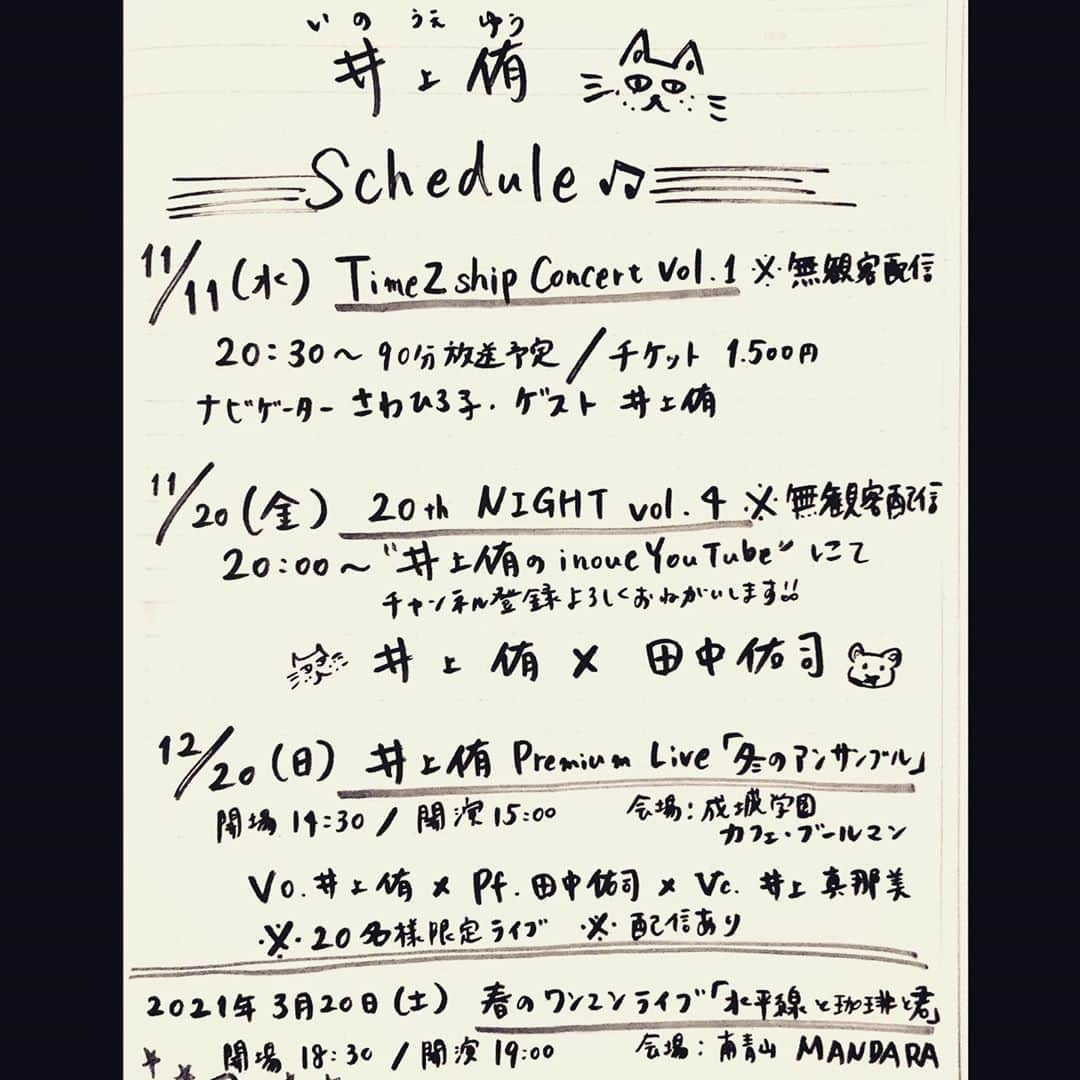 いのうえゆう
井上侑
Schedule
11/11(水) Time2ship Concert vol.1 ※無観客配信
20:30〜90分放送予定/チケット 1.500円
ナビゲーター さわひろ子. ゲスト 井上侑
11/20(金) 20th NIGHT vol.4 ※無観客配信
20:00〜"井上侑のinoueYouTube"にて
チャンネル登録よろしくおねがいします!!
井上侑×田中佑司
12/20(日) 井上侑 Premium Live「冬のアンサンブル」
開場 14:30 / 開演 15:00 会場:成城学園
カフェ・ブールマン
Vo.井上侑×Pf.田中佑司×Vc.井上真那美
※20名様限定ライブ ※配信あり
2021年3月20日(土) 春のワンマンライブ「水平線と珈琲と君」
開場 18:30 / 開演 19:00 会場:南青山 MANDARA